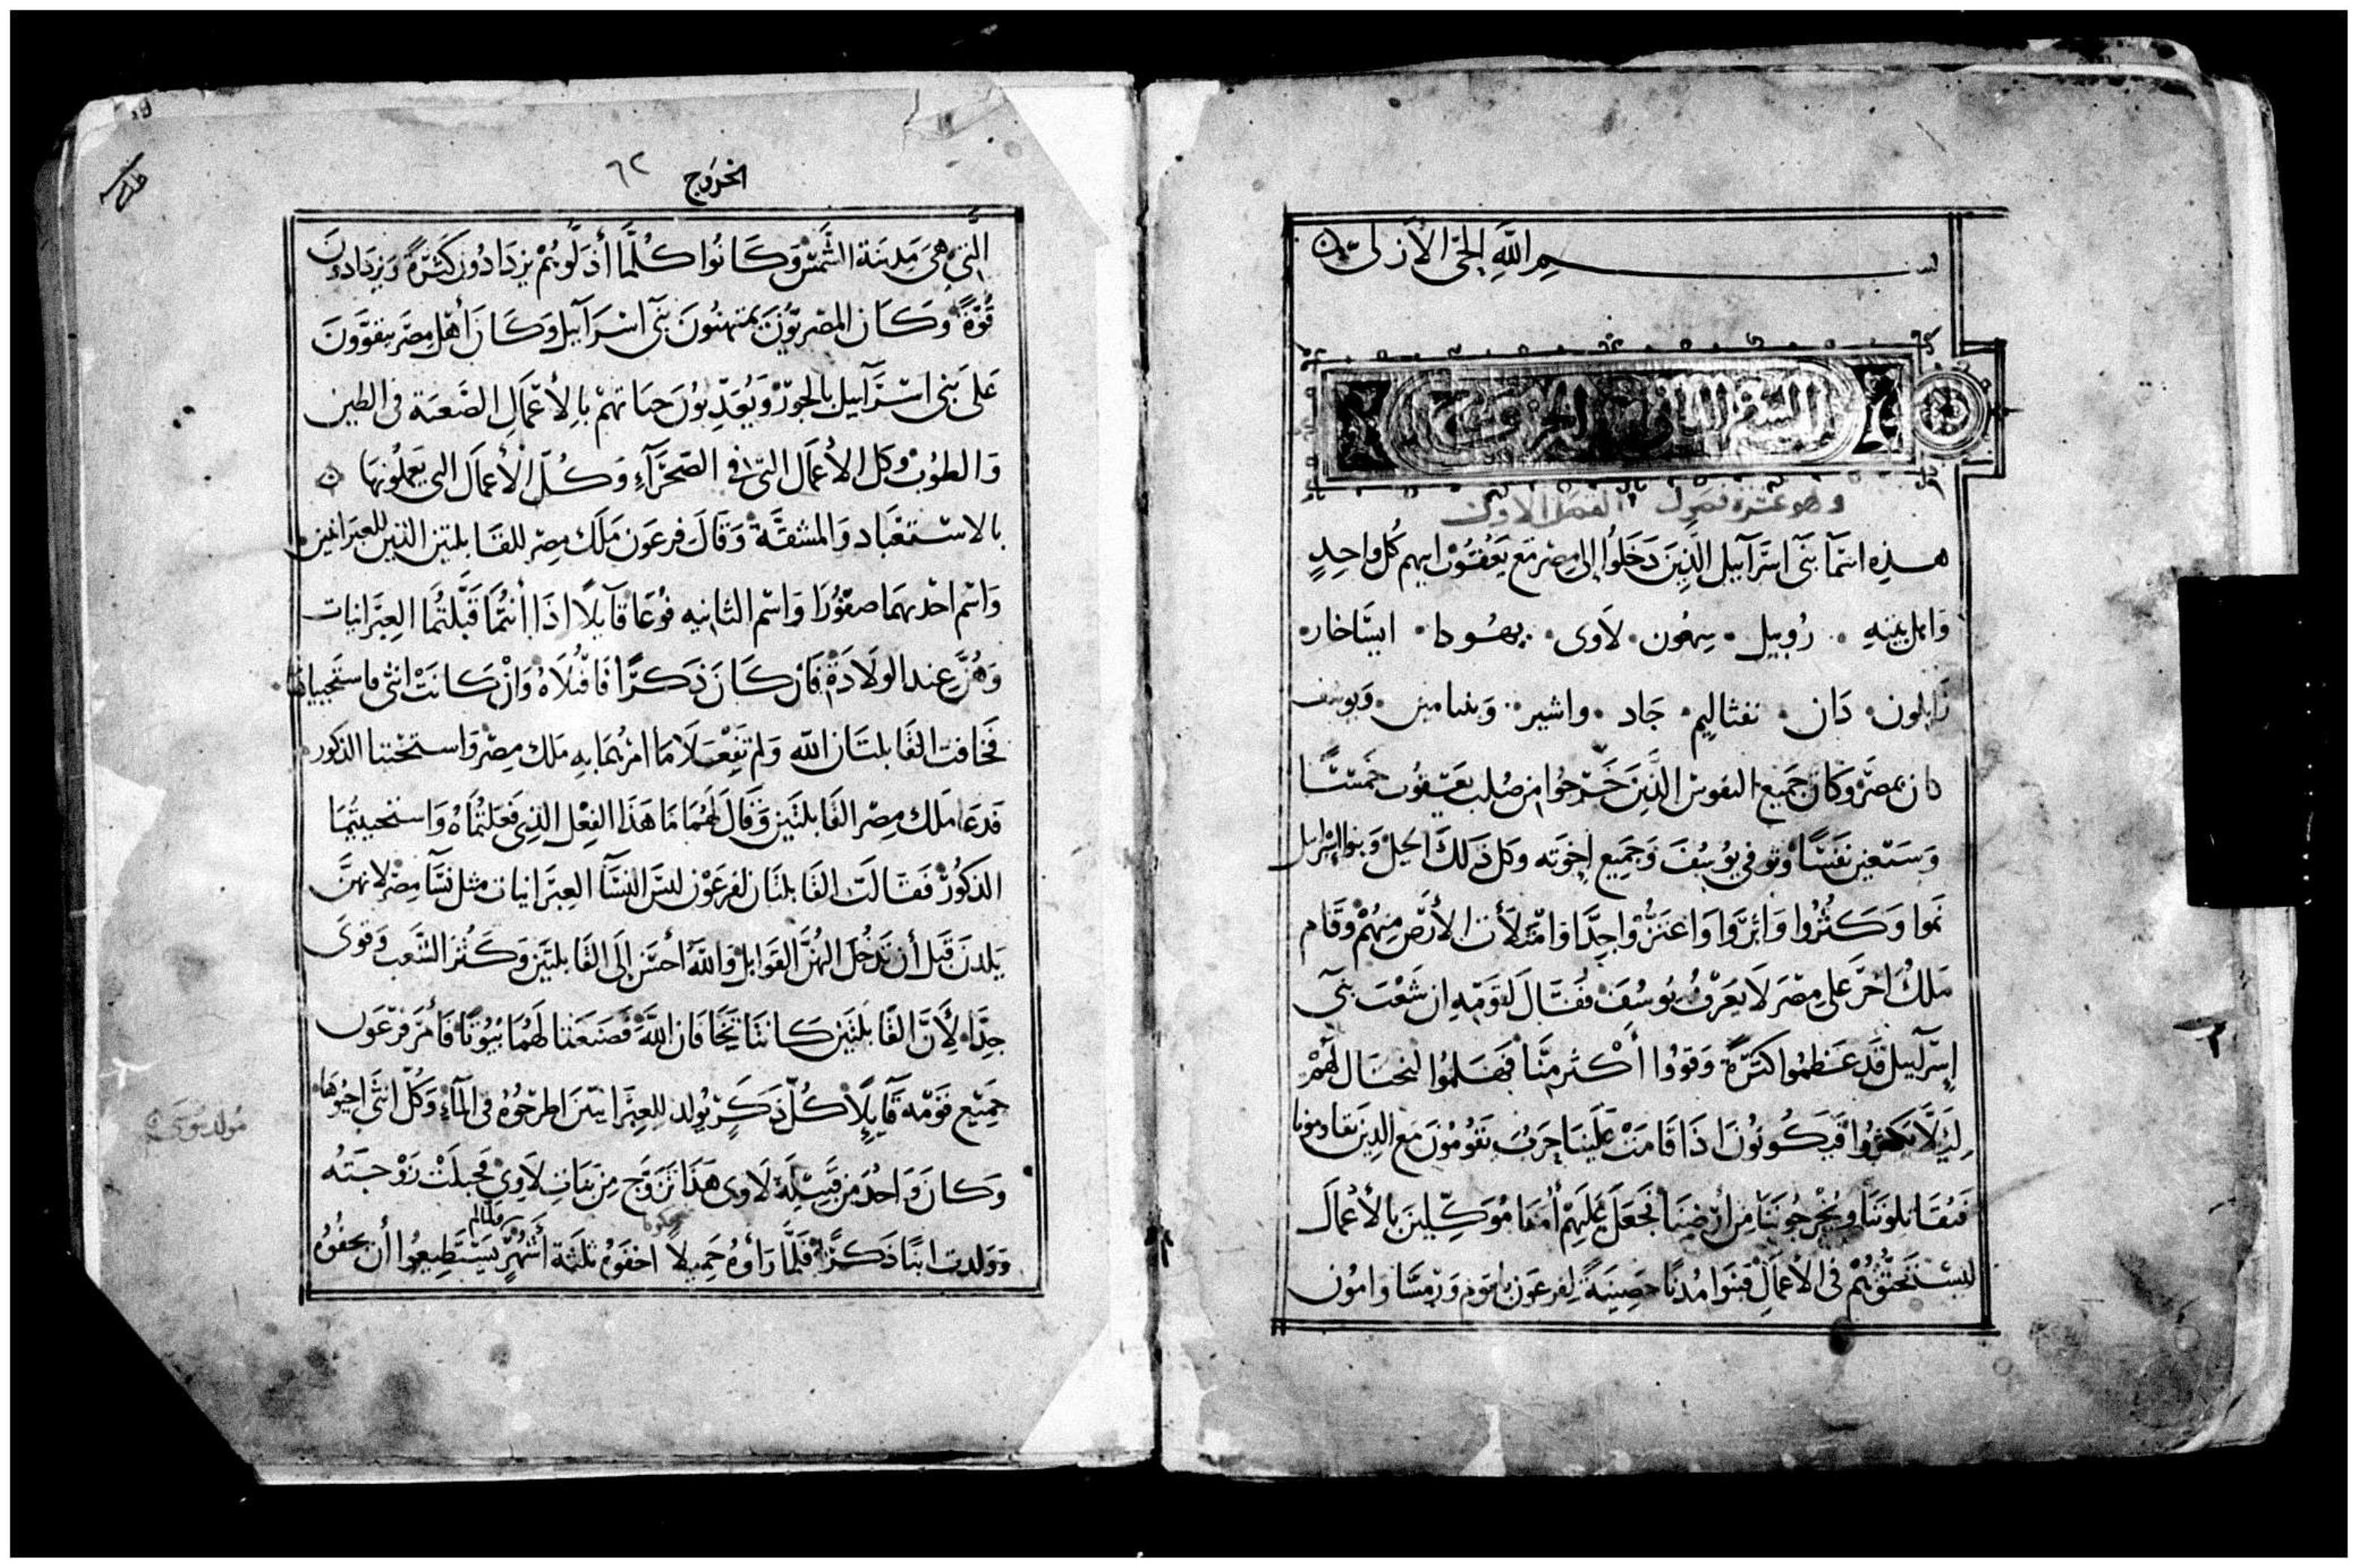 بسم الله الحي الأزلي
السفر الثاني الخروج
وهو عشرة فصول الفصل الاول
هذه اسمآ بني اسرآييل الذين دخلوا إلى مصر مع يعقوب ابيهم كل واحدٍ
واهل بيته روبيل سمعون لاوى يهودا ايساخار
زابلون دان نفثاليم جاد واشير وبنيامين ويوسف
كان بمصر وكان جميع النفوس الذين خرجوا من صلب يعقوب خمسًا
وسبعين نفسًا وتوفي يوسف وجميع اخوته وكل ذلك الجيل وبنوا اسراييل
نموا وكثروا واعتزوا جدًّا وامتلأت الأرض منهم وقام
ملك اخر على مصر لا يعرف يوسف فقال لقومه ان شعب بني
إسرآييل قد عظموا كثرةً وقووا أكثر منا فهلموا لنحتال لهم
ليلا يكثروا فيكونون اذا قامت علينا حرب يقومون مع الذين يقاومونا
فيقاتلوننا ويخرجوننا من أرضنا فجعل عليهم أمنا موكلين بالأعمال
في الأعمال فبنوا مدنًا حصينةً لفرعون ورمسا وامون
الخروج ٦٢
التي هي مدينة الشمس وكانوا كلما أذلوهم يزدادون كثرةً ويزدادون
قوّةً وكان المصريون يمتهنون بني اسرآييل وكان أهل مصر يتقوون
على بني اسرآييل بالجور ويعذبون حياتهم بالأعمال الصعبة في الطين
والطوب وكل الأعمال التي في الصحرآء وكل الأعمال التي يعملونها
بالاستعباد والمشقة وقال فرعون ملك مصر للقابلتين اللتين للعبرانيين
واسم احدهما صفورا واسم الثانيه فوعا قآيلاً اذا أنتما قبلتما العبرانيات
وهن عند الولادة فان كان ذكرًا فاقتلاه وان كانت انثى فاستحيياها
فخافت القابلتان الله ولم تفعلا ما امرهما به ملك مصر واستحيتا الذكور
فدعا ملك مصر القابلتين وقال لهما ما هذا الفعل الذي فعلتماه واستحييتما
الذكور فقالت القابلتان لفرعون ليس النسآ العبرانيات مثل نسآ مصر لانهن
يلدن قبل أن تدخل اليهن القوابل والله أحسن إلى القابلتين وكثر الشعب وقوى
جدًّا لأن القابلتين كانتا يخافان الله فصنعتا لهما بيوتًا فأمر فرعون
جميع قومه قآيلاً كل ذكر يولد للعبرانيين اطرحوه في المآء وكل انثى احيوها
مولد موسى
وكان واحد من قبيلة لاوى هذا تزوج من بنات لاوي فحبلت زوجته
وولدت ابنًا ذكرًا فلما رأوه جميلاً اخفوه ثلثة أشهر فلما لم يستطيعوا أن يخفوه